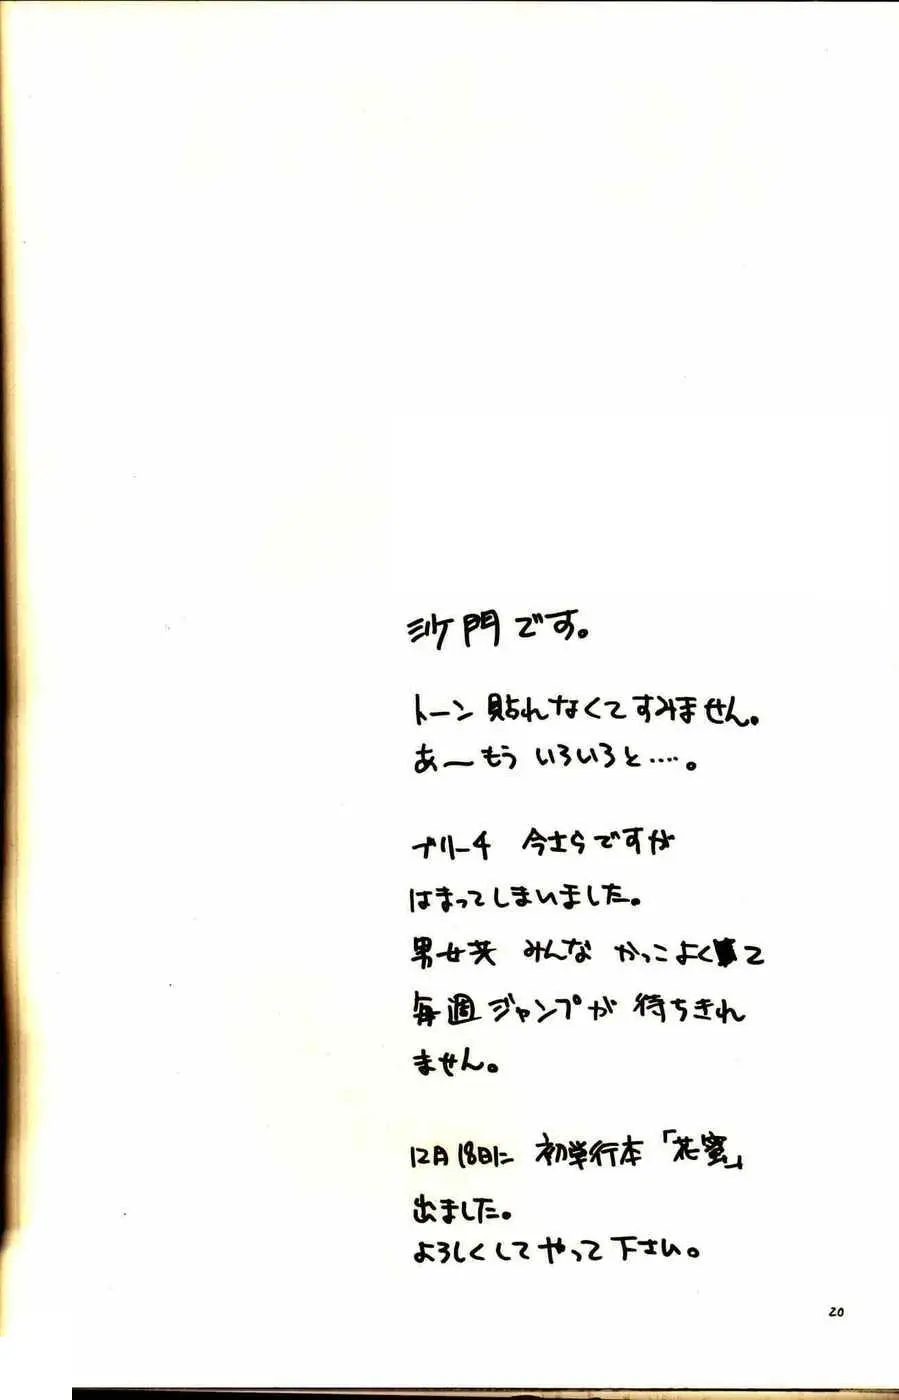 沙門です。
トーン 貼れなくてすみません。
あーもう いろいろと‥‥。
ブリーチ 今さらですが
はまってしまいました。
男女共 みんな かっこよくて
毎週ジャンプが 待ちきれ
ません。
12月18日に 初単行本「花蜜」
出ました。
よろしくしてやって下さい。
20